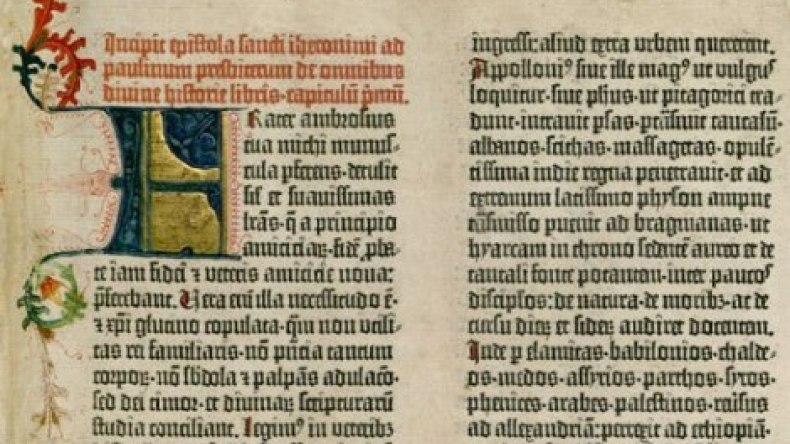 Incipit epistola sancti iheronimi ad
paulinum presbiterum de omnibus
divine historie libris·capitulū pmū.
Frater ambrosius
tua michi munus-
cula pferens·detulit
sil' et suavissimas
lrās·q̄ a principio
amiciciaꝝ·fidē pba-
te iam fidei ⁊ veteris amicicie nova:
pferebant. Vera eni illa necessitudo ē·
⁊ xpi glutino copulata·qm non utili-
tas rei familiaris·nō pntia tantum
corpoꝝ·nō sbdola ⁊ palpās adulacō·
sed dei timor·et divinaꝝ scripturarū
studia conciliant. Legim⁹ in veteribꝫ
ingressi:aliud extra urbem quererent.
Appolloni⁹ sive ille mag⁹ ut vulgus
loquitur·sive phus·ut pitagorici tra-
dunt·intravit psas·ptrāsivit caucasū·
albanos·scithas·massagetas·opulē-
tissima indie regna penetravit·et ad
extremum latissimo physon amne
trāsmisso puenit ad bragmanas·ut
hyarcam in throno sedētē aureo et de
tantali fonte potantem·inter paucos
discipłos:de natura·de moribꝫ·ac de
cursu dieꝝ et sideꝝ audiret docentem.
Inde p elamitas·babilonios·chalde-
os·medos·assyrios·parthos·syros·
phenices·arabes·palestinos·reversus
ad allexandriā:perrexit ad ethiopiā·